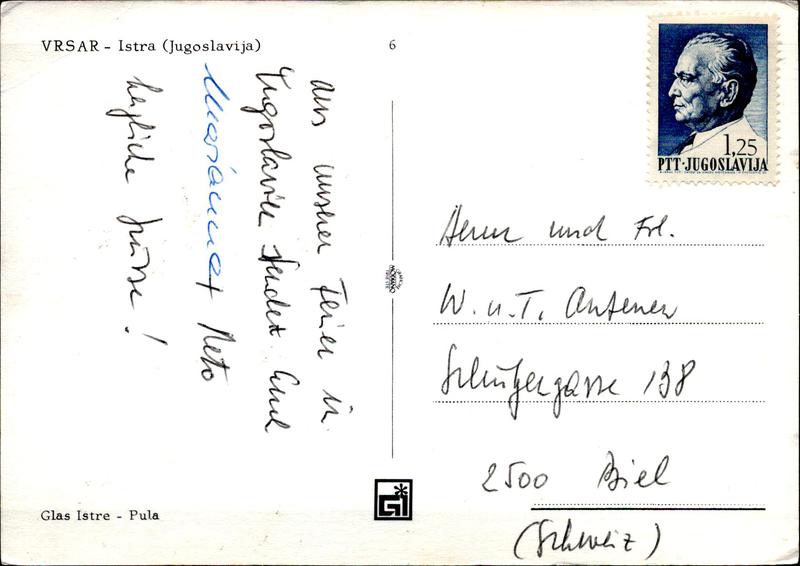 VRSAR - Istra (Jugoslavija)
6
Aus unseren Ferien in
Jugoslavien sendet Euch
Marianne + Reto
herzliche Grüsse!
1,25
PTT·JUGOSLAVIJA
Herrn und Frl.
W. u. T. Antenen
Schützengasse 138
2500 Biel
(Schweiz)
Glas Istre - Pula
GI